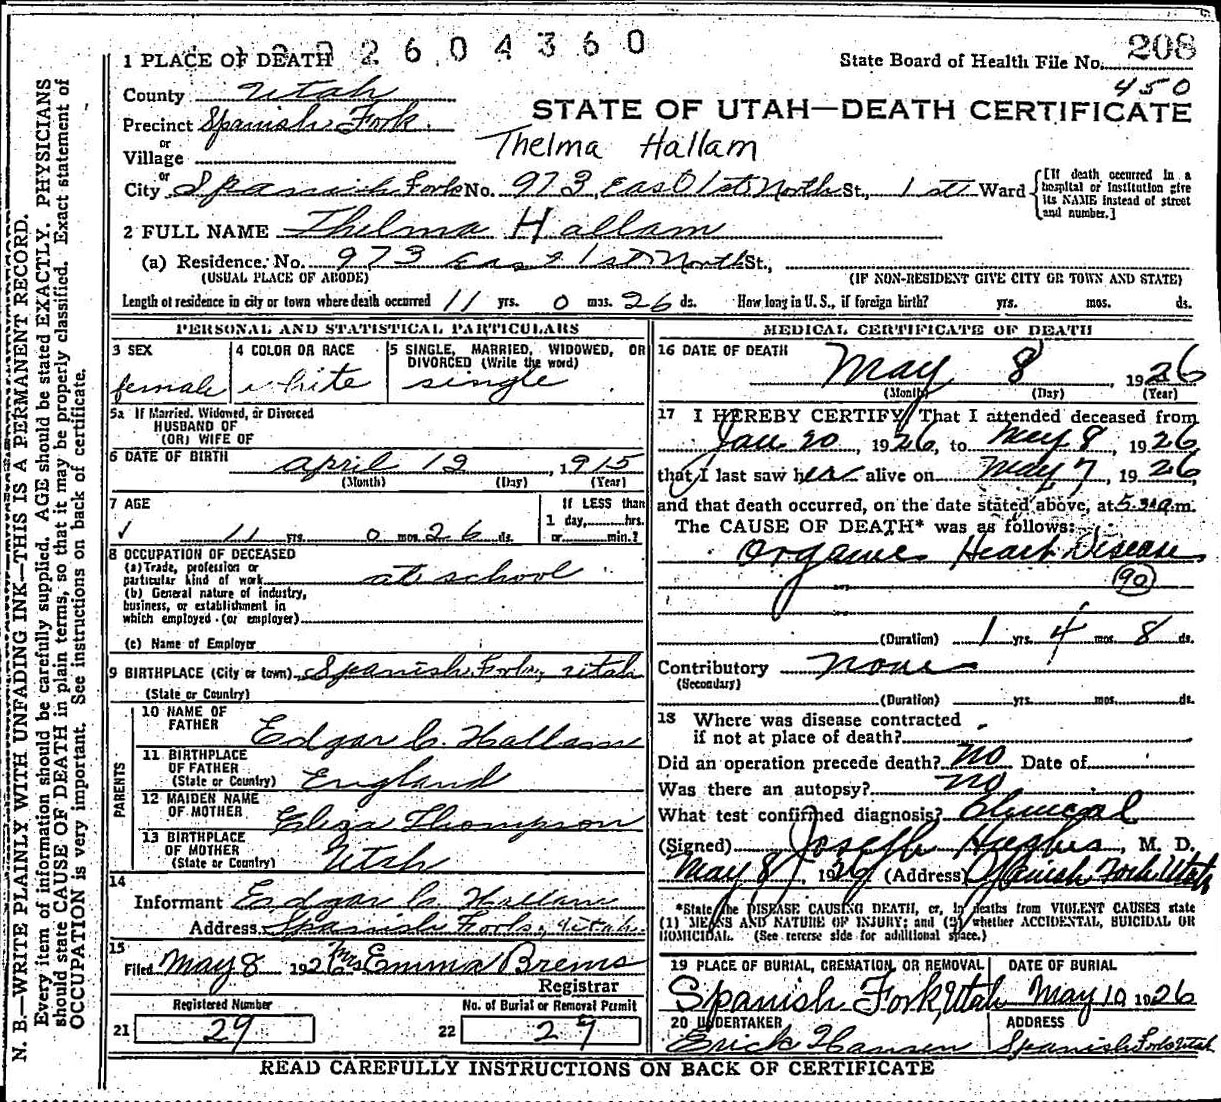 2604360
1 PLACE OF DEATH
State Board of Health File No. 208
450
County Utah
STATE OF UTAH—DEATH CERTIFICATE
Precinct Spanish Fork.
or
Village
Thelma Hallam
or
City Spanish Fork No. 973 East 1st North St., 1st Ward
[If death occurred in a hospital or institution give its NAME instead of street and number.]
2 FULL NAME Thelma Hallam
(a) Residence. No. 973 East 1st North St.,
(USUAL PLACE OF ABODE) (IF NON-RESIDENT GIVE CITY OR TOWN AND STATE)
Length of residence in city or town where death occurred 11 yrs. 0 mos. 26 ds. How long in U. S., if foreign birth? yrs. mos. ds.
PERSONAL AND STATISTICAL PARTICULARS
3 SEX
female
4 COLOR OR RACE
white
5 SINGLE, MARRIED, WIDOWED, OR DIVORCED (Write the word)
single
5a If Married, Widowed, or Divorced
HUSBAND OF
(OR) WIFE OF
6 DATE OF BIRTH April 12, 1915
(Month) (Day) (Year)
7 AGE
11 yrs. 0 mos. 26 ds.
If LESS than
1 day, hrs.
or min.?
8 OCCUPATION OF DECEASED
(a) Trade, profession or
particular kind of work at school
(b) General nature of industry,
business, or establishment in
which employed (or employer)
(c) Name of Employer
9 BIRTHPLACE (City or town) Spanish Fork, Utah
(State or Country)
PARENTS
10 NAME OF
FATHER Edgar C. Hallam
11 BIRTHPLACE
OF FATHER
(State or Country) England
12 MAIDEN NAME
OF MOTHER Eliza Thompson
13 BIRTHPLACE
OF MOTHER
(State or Country) Utah
14
Informant Edgar C. Hallam
Address Spanish Fork, Utah.
15
Filed May 8 1926 Mrs Emma Brems
Registrar
Registered Number
21 29
No. of Burial or Removal Permit
22 29
MEDICAL CERTIFICATE OF DEATH
16 DATE OF DEATH
May 8, 1926
(Month) (Day) (Year)
17 I HEREBY CERTIFY, That I attended deceased from
Jan 20, 1926, to May 8, 1926
that I last saw her alive on May 7, 1926,
and that death occurred, on the date stated above, at 5:30 a.m.
The CAUSE OF DEATH* was as follows:
Organic Heart Disease
90
(Duration) 1 yrs. 4 mos. 8 ds.
Contributory none
(Secondary)
(Duration) yrs. mos. ds.
18 Where was disease contracted
if not at place of death?
Did an operation precede death? no Date of
Was there an autopsy? no
What test confirmed diagnosis? Clinical
(Signed) Joseph Hughes, M. D.
May 8, 1926 (Address) Spanish Fork Utah
*State the DISEASE CAUSING DEATH, or, in deaths from VIOLENT CAUSES state
(1) MEANS AND NATURE OF INJURY; and (2) whether ACCIDENTAL, SUICIDAL OR
HOMICIDAL. (See reverse side for additional space.)
19 PLACE OF BURIAL, CREMATION, OR REMOVAL
Spanish Fork, Utah
DATE OF BURIAL
May 10 1926
20 UNDERTAKER
Erick Hansen
ADDRESS
Spanish Fork Utah
READ CAREFULLY INSTRUCTIONS ON BACK OF CERTIFICATE
N. B.—WRITE PLAINLY WITH UNFADING INK—THIS IS A PERMANENT RECORD.
Every item of information should be carefully supplied. AGE should be stated EXACTLY. PHYSICIANS
should state CAUSE OF DEATH in plain terms, so that it may be properly classified. Exact statement of
OCCUPATION is very important. See instructions on back of certificate.